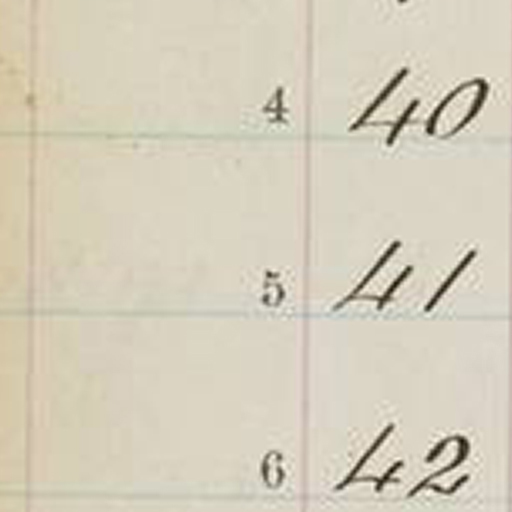 4 40
5 41
6 42